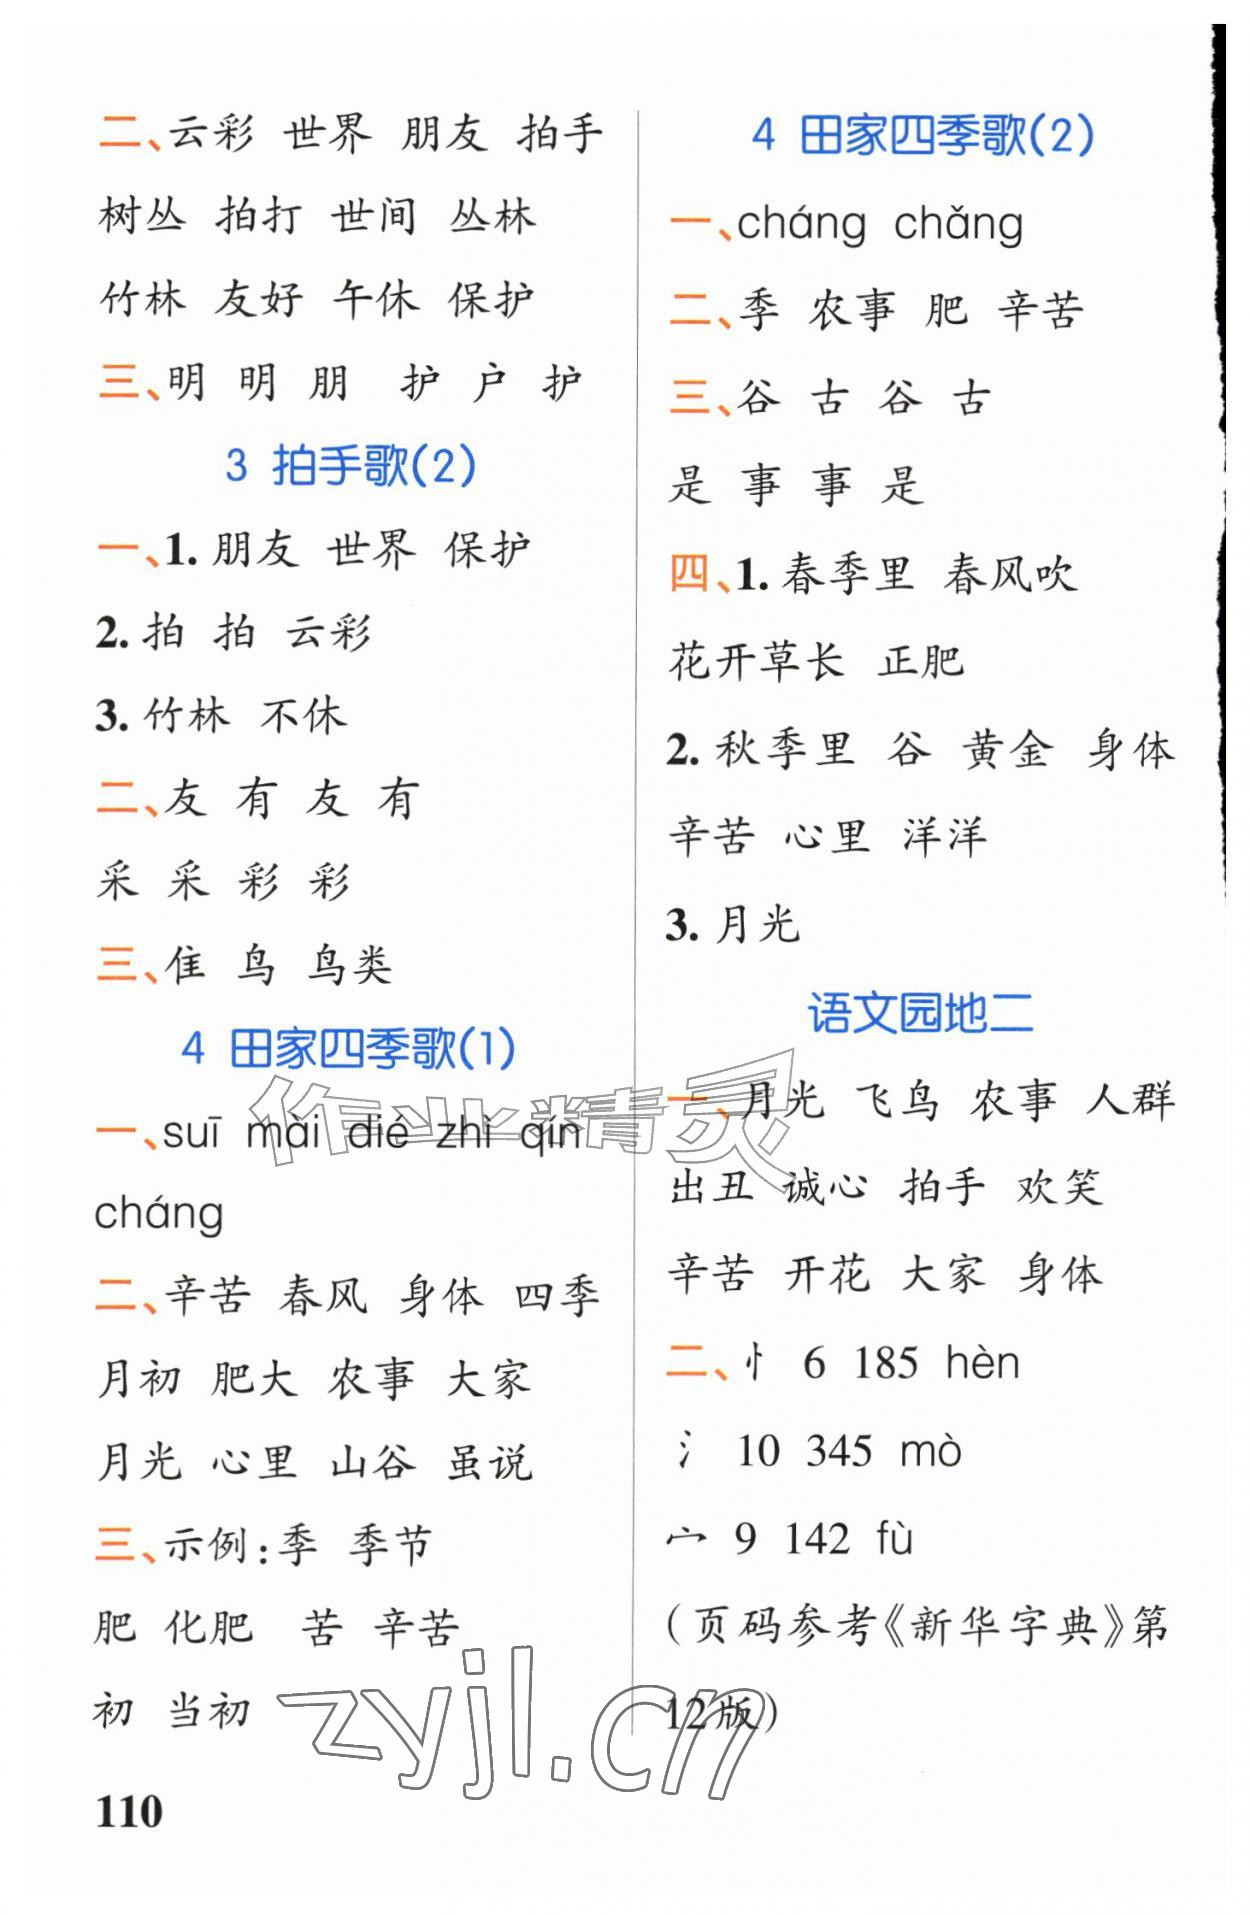 二、云彩 世界 朋友 拍手
树丛 拍打 世间 丛林
竹林 友好 午休 保护
三、明 明 朋 护 户 护
3 拍手歌(2)
一、1. 朋友 世界 保护
2. 拍 拍 云彩
3. 竹林 不休
二、友 有 友 有
采 采 彩 彩
三、隹 鸟 鸟类
4 田家四季歌(1)
一、suī mài dié zhì qín
cháng
二、辛苦 春风 身体 四季
月初 肥大 农事 大家
月光 心里 山谷 虽说
三、示例:季 季节
肥 化肥 苦 辛苦
初 当初
110
4 田家四季歌(2)
一、cháng chǎng
二、季 农事 肥 辛苦
三、谷 古 谷 古
是 事 事 是
四、1. 春季里 春风吹
花开草长 正肥
2. 秋季里 谷 黄金 身体
辛苦 心里 洋洋
3. 月光
语文园地二
一、月光 飞鸟 农事 人群
出丑 诚心 拍手 欢笑
辛苦 开花 大家 身体
二、忄 6 185 hèn
氵 10 345 mò
宀 9 142 fù
(页码参考《新华字典》第
12版)
作业精灵
zyjl.cn